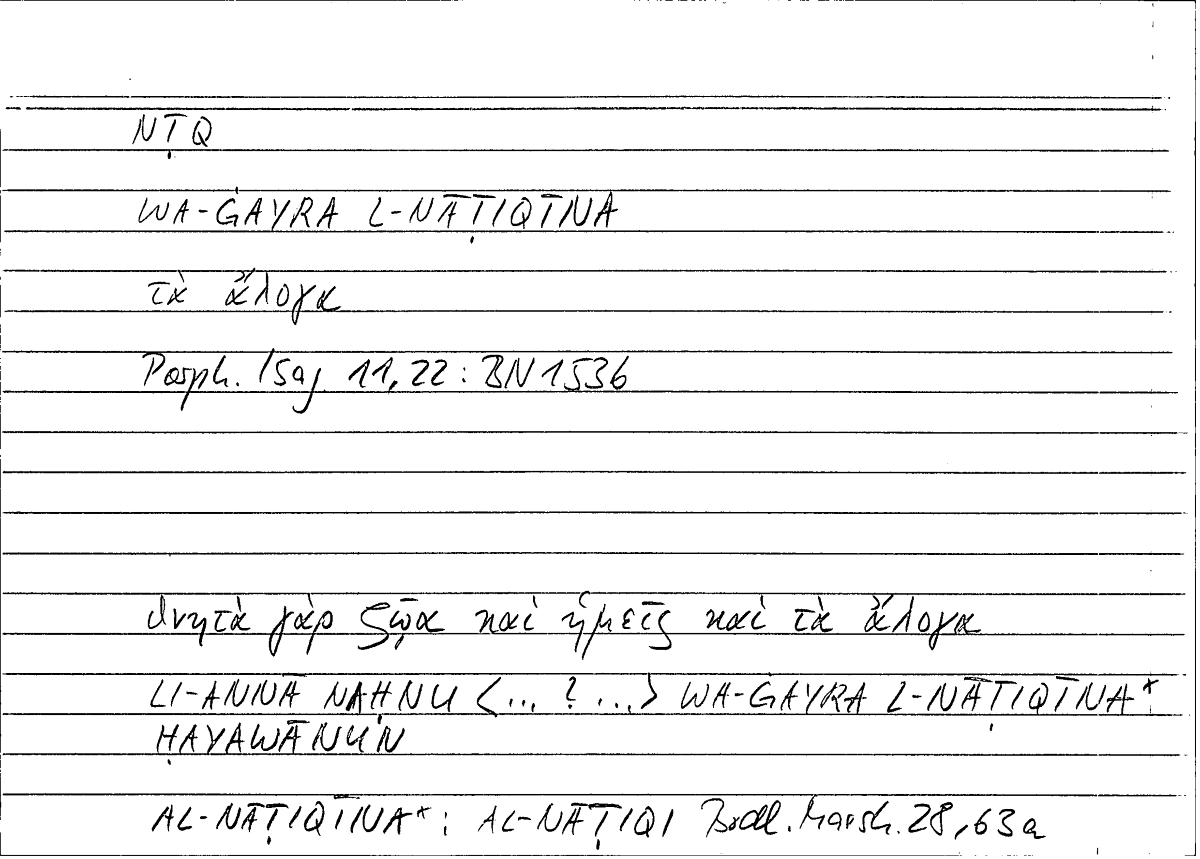 NṬQ
WA-ĠAYRA L-NĀṬIQĪNA
τὰ ἄλογα
Porph. Isag 11,22: BN 1536
θνητὰ γὰρ ζῷα καὶ ἡμεῖς καὶ τὰ ἄλογα
LI-ANNĀ NAḤNU <... ? ...> WA-ĠAYRA L-NĀṬIQĪNA*
ḤAYAWĀNUN
AL-NĀṬIQĪNA*: AL-NĀṬIQI Bodl. Marsh. 28,63a